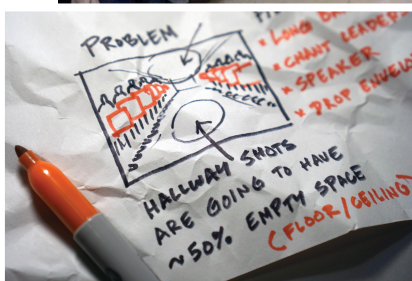 PROBLEM
* LONG
* CHANT LEADER
* SPEAKER
* PROP
HALLWAY SHOTS
ARE GOING TO HAVE
~50% EMPTY SPACE
(FLOOR/CEILING)